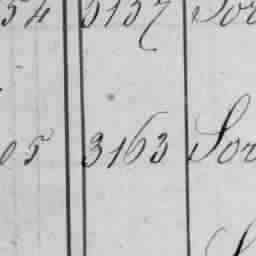 54 3137 Sor
05 3163 Sor